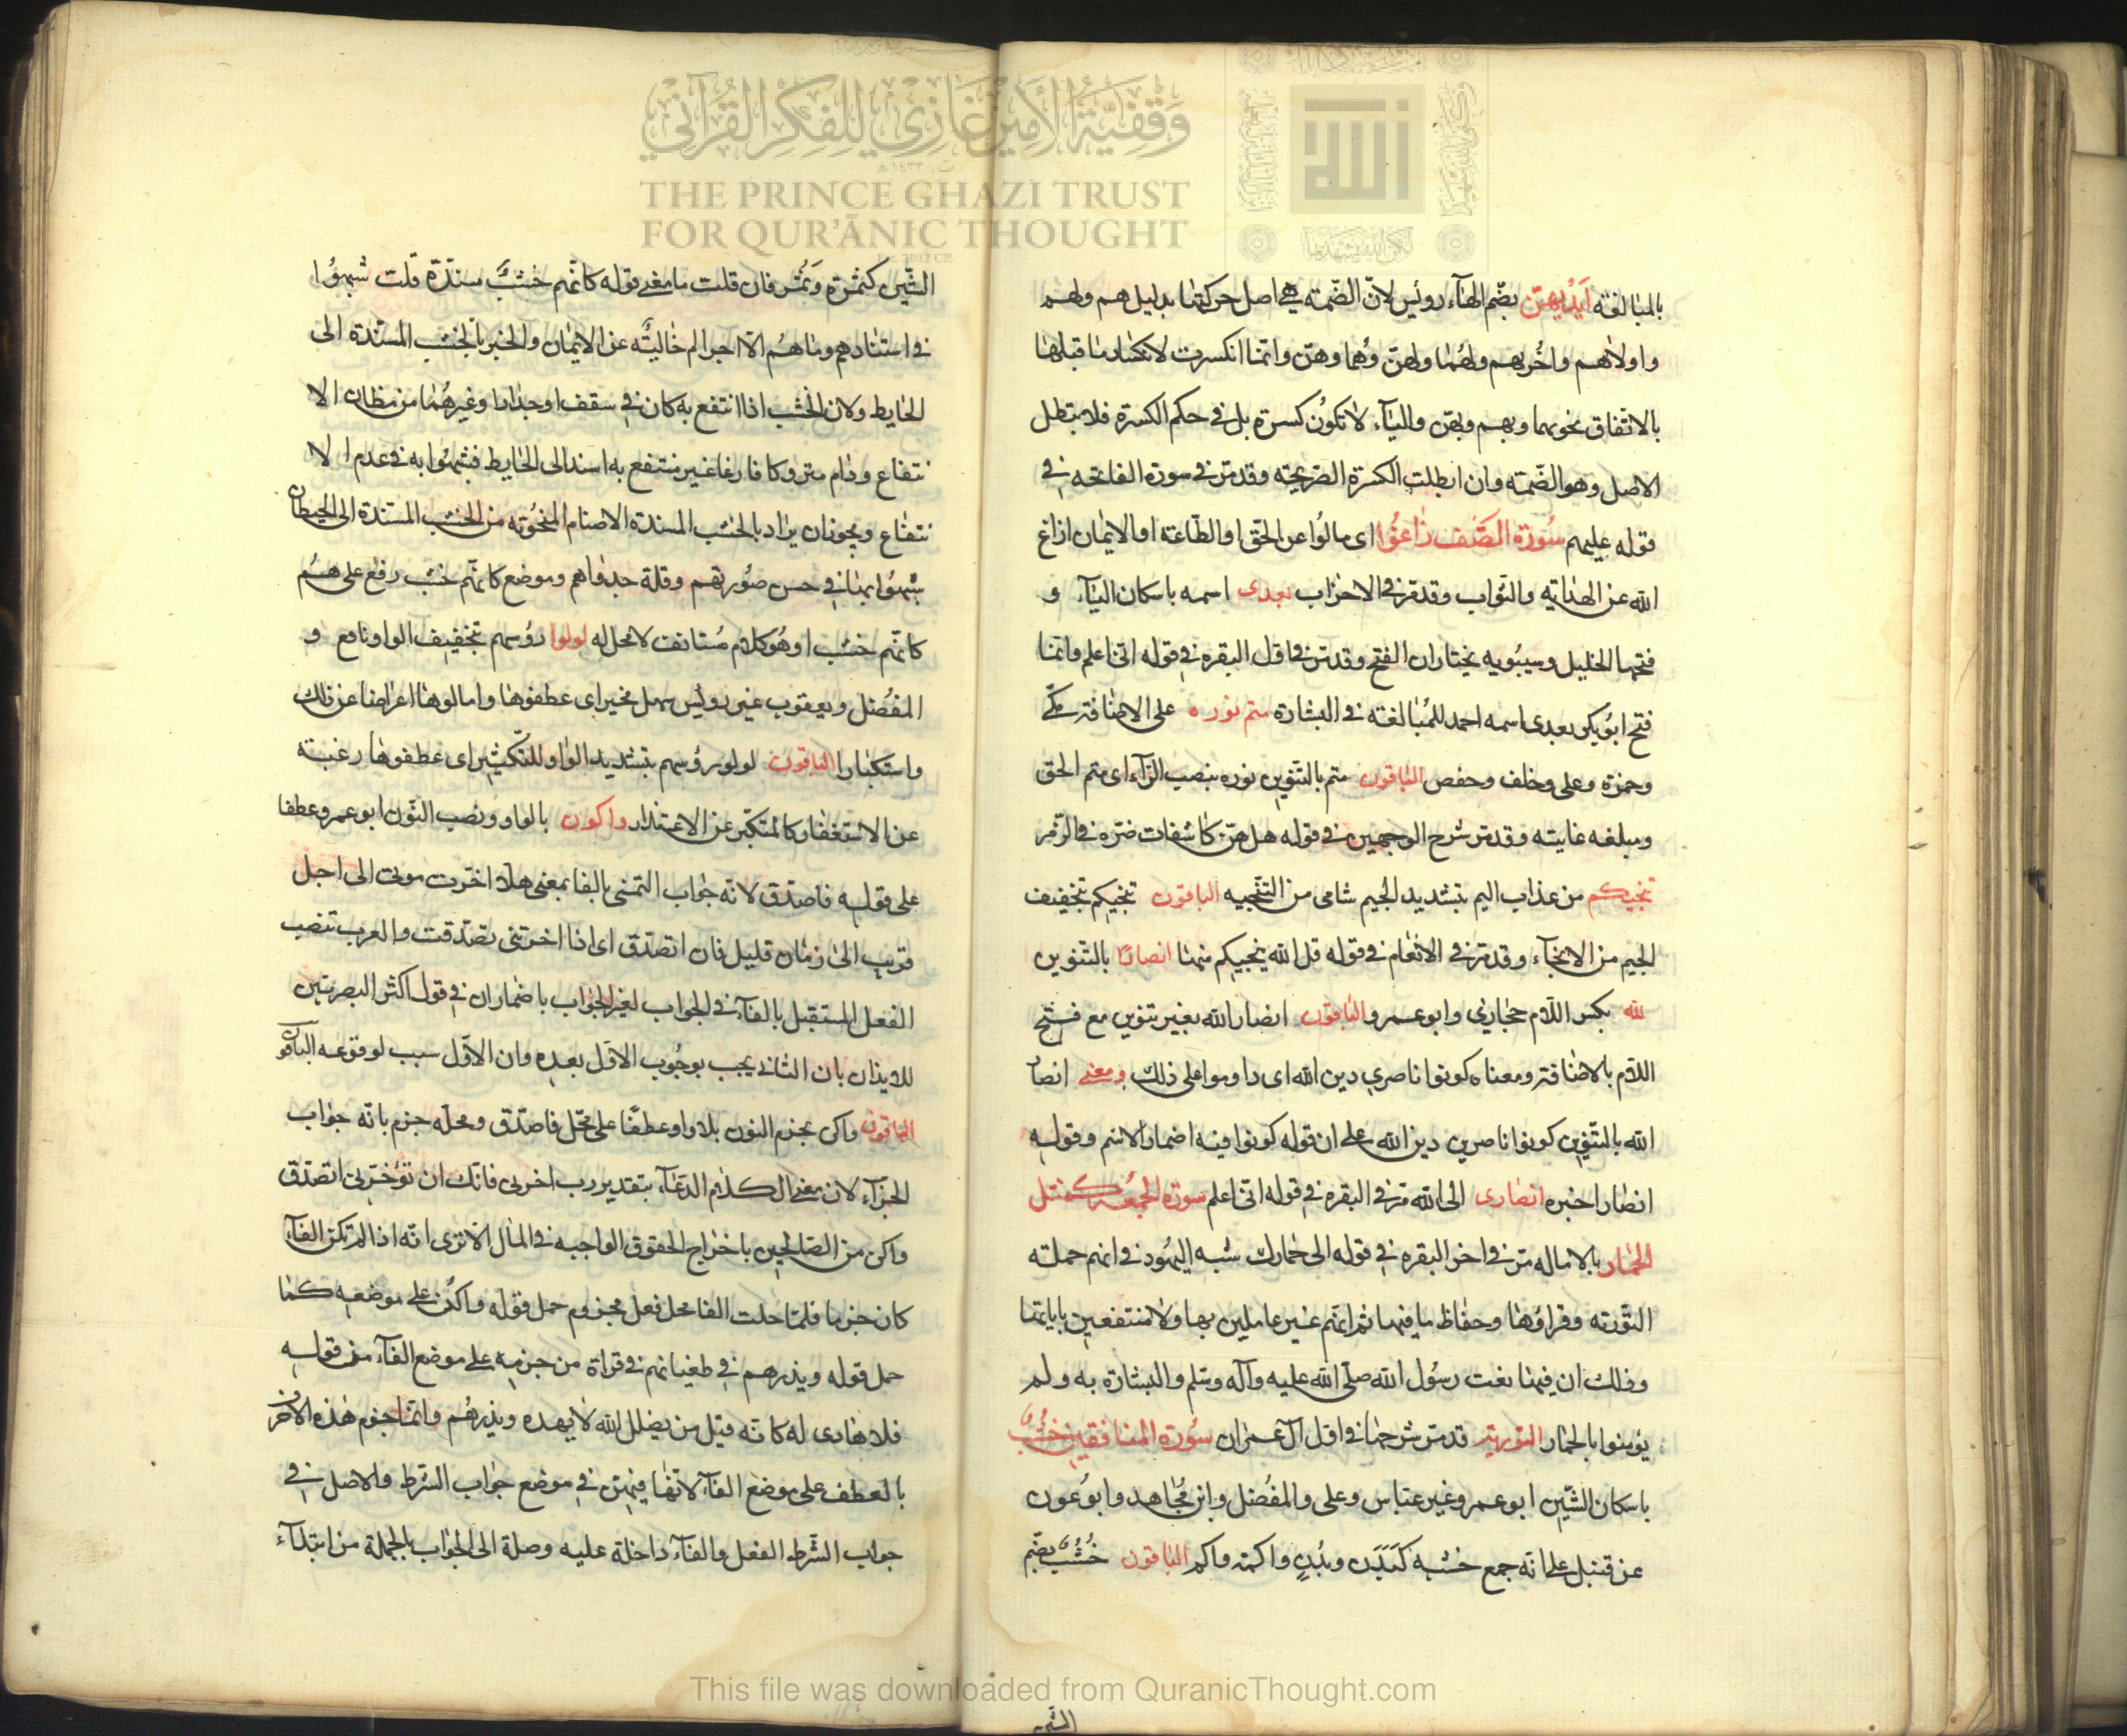 وَقْفِيَّةُ الأَمِيرِ غَازِي لِلفِكْرِ القُرْآنِي
THE PRINCE GHAZI TRUST
FOR QUR'ĀNIC THOUGHT
الله
بالمبالغة اَيْديهنّ بضّم الهآء رويس لانّ الضّمة هى اصل حركتها بدليل هم ولهم
واولاهم واخريهم ولهُما ولهنّ وهُما وهنّ وانّما انكسرت لانكسار ما قبلها
بالاتّفاق نحو بهما وبهم وبهن واليآء لا تكون كسرة بل فى حكم الكسرة فلا يبطل
الاصل وهو الضّمة وان ابطلت الكسرة الصّريحة وقد مرّ فى سورة الفاتحه فى
قوله عليهم سُورة الصَّف زاغوُا اى مالوُا عن الحقّ او الطّاعة او الايمان ازاغ
الله عن الهداية والثّواب وقد مرّ فى الاحزاب بعدى اسمه باسكان اليآء و
فتحها الخليل وسيبُويه يختاران الفتح وقد مرّ فى اوّل البقره فى قوله انّى اعلم وانّما
فتح ابوُبكر بعدى اسمه احمد للمُبالغة فى البشارة متم نوره على الاضافة مكّى
وحمزة وعلى وخلف وحفص الباقون متم بالتّنوين نوره بنصب الرّآء اى متم الحق
ومبلغه غايته وقد مرّ شرح الوجهين فى قوله هل هنّ كاشفات ضرّه فى الزّمر
تنجيكم من عذاب اليم بتشديد الجيم شامى من التّنجيه الباقون تنجيكم بتخفيف
الجيم من الانجآء وقد مرّ فى الانعام فى قوله قل الله ينجيكم منها انصارًا بالتّنوين
لله بكسر اللّام حجازى وابو عمرو والباقون انصار الله بغير تنوين مع فتح
اللّام بالاضافة ومعناه كونوا ناصرى دين الله اى داوموا على ذلك ومعنى انصارًا
الله بالتّنوين كونوا ناصرين دين الله على ان قوله كونوا فيه اضمار الاسم وقوله
انصارا خبره انصارى الى الله مرّ فى البقره فى قوله انّى اعلم سورة الجمُعة كمثل
الحمار بالاماله مرّ فى اخر البقره فى قوله الى حمارك شبه اليهُود فى انهم حملة
التّورية وقراؤها وحفاظ ما فيها ثم انّهم غير عاملين بها ولا منتفعين باياتها
وذلك ان فيها نعت رسُول الله صلّى الله عليه وآله وسّلم والبشارة به ولم
يؤمنوا بالحمار التورية قد مرّ شرحها فى اوّل آل عمران سُورة المنافقين خُشُبٌ
باسكان الشّين ابو عمرو غير عبّاس وعلى والمفُضل وابن مُجاهد وابوُ عون
عن قنبل على انّه جمع خشبه كبَدَنة وبُدْنٍ واكمة واكم الباقون خُشُبٌ بضّم
الشين
الشّين كثمُرة وَثُمُر فان قلت ما معنى قوله كانّهم خشبٌ مسنّدة قلت شبهوُا
فى استنادهم وما هُم الّا اجرام خاليةٌ عن الايمان والخير بالخشب المسنّدة الى
الحايط ولان الخشب اذا انتفع به كان فى سقف او جدار او غيرهُما من مظان الا
نتفاع ودام متروكا فارغا غير منتفع به اسند الى الحايط فشبهوُا به فى عدم الا
نتفاع ويجوز ان يراد بالخشب المسندة الاصنام المنحوُته من الخشب المستندة الى الحيطان
شبهوُا بها فى حسن صُورتهم وقلة جدواهم وموضع كانّهم خشب رفع على هُم
كانّهم خشب او هُو كلام مُستانف لا محل له لولوا رؤسهم بتخفيف الواو نافع و
المفُضل ويعقوب غير رويس سهل مخير اى عطفوها وامالوها اعراضا عن ذلك
واستكبارا الباقون لولو رؤسهم بتشديد الواو للتّكثير اى عطفوها رغبة
عن الاستغفار كالمتكبّر عن الاعتذار واكون بالواو ونصب النّون ابو عمرو عطفا
على قوله فاصدّق لانّه جواب التمنى بالفا بمعنى هلّا اخّرت موتى الى اجل
قريب الى زمان قليل فان اتصدّق اى اذا اخرتنى تصدّقت والعرب تنصب
الفعل المستقبل بالفآء فى الجواب لغير الجواب باضمار ان فى قول اكثر البصريّين
للايذان بان الثانى يجب بوجُوب الاوّل بعده وان الاوّل سبب لوقوعه الباقون
الباقون واكن بجزم النون بلا واو عطفًا على محّل فاصدّق ومحلّه جزم بانّه جواب
الجزآء لان معنى الكلام الدعآء بتقدير رب اخرنى فانّك ان تؤخّرنى اتصدّق
واكن من الصّالحين باخراج الحقوق الواجبه فى المال الا ترى انّه اذا لم تكن الفآء
كان جزما فلمّا حلت الفا محل فعل مجزوم حمل قوله واكُن على موضعه كما
حمل قوله ويذرهم فى طغيانهم فى قراة من جزمه على موضع الفآء من قوله
فلا هادى له كانّه قيل من يضلل الله لا يهده ويذرهُم وانّما جزم هذه الاحرف
بالعطف على موضع الفآء لانّها فيهنّ فى موضع جواب الشّرط والاصل فى
جواب الشّرط الفعل والفآء داخلة عليه وصلة الى الجواب بالجملة من ابتدآء
This file was downloaded from QuranicThought.com